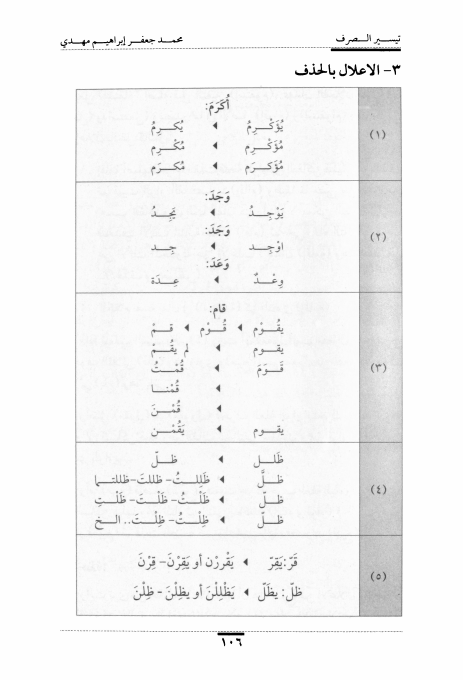 تيسير الصرف
محمد جعفر إبراهيم مهدي
٣- الاعلال بالحذف
(١)
أَكْرَمَ:
يُؤَكْرِمُ ◂ يُكرِمُ
مُؤَكْرِم ◂ مُكْرِم
مُؤَكرَم ◂ مُكرَم
(٢)
وَجَدَ:
يَوْجِدُ ◂ يَجِدُ
وَجَدَ:
اوْجِد ◂ جِد
وَعَدَ:
وِعْدٌ ◂ عِدَة
(٣)
قام:
يقُوْم ◂ قُوْم ◂ قمْ
يقوم ◂ لم يقُمْ
قَوَمَ ◂ قُمْتُ
◂ قُمْنا
◂ قُمْنَ
يقوم ◂ يَقُمْن
(٤)
ظَلل ◂ ظلّ
ظلَّ ◂ ظَلِلتُ- ظللتَ- ظللتما
ظلّ ◂ ظَلْتُ- ظَلْتَ- ظَلْتِ
ظلّ ◂ ظِلْتُ- ظِلْتَ.. الخ
(٥)
قَرّ: يَقِرّ ◂ يَقْررْن أو يَقِرْنَ- قِرْنَ
ظلّ: يظَلّ ◂ يَظْلِلْنَ أو يظِلْنَ - ظِلْنَ
١٠٦